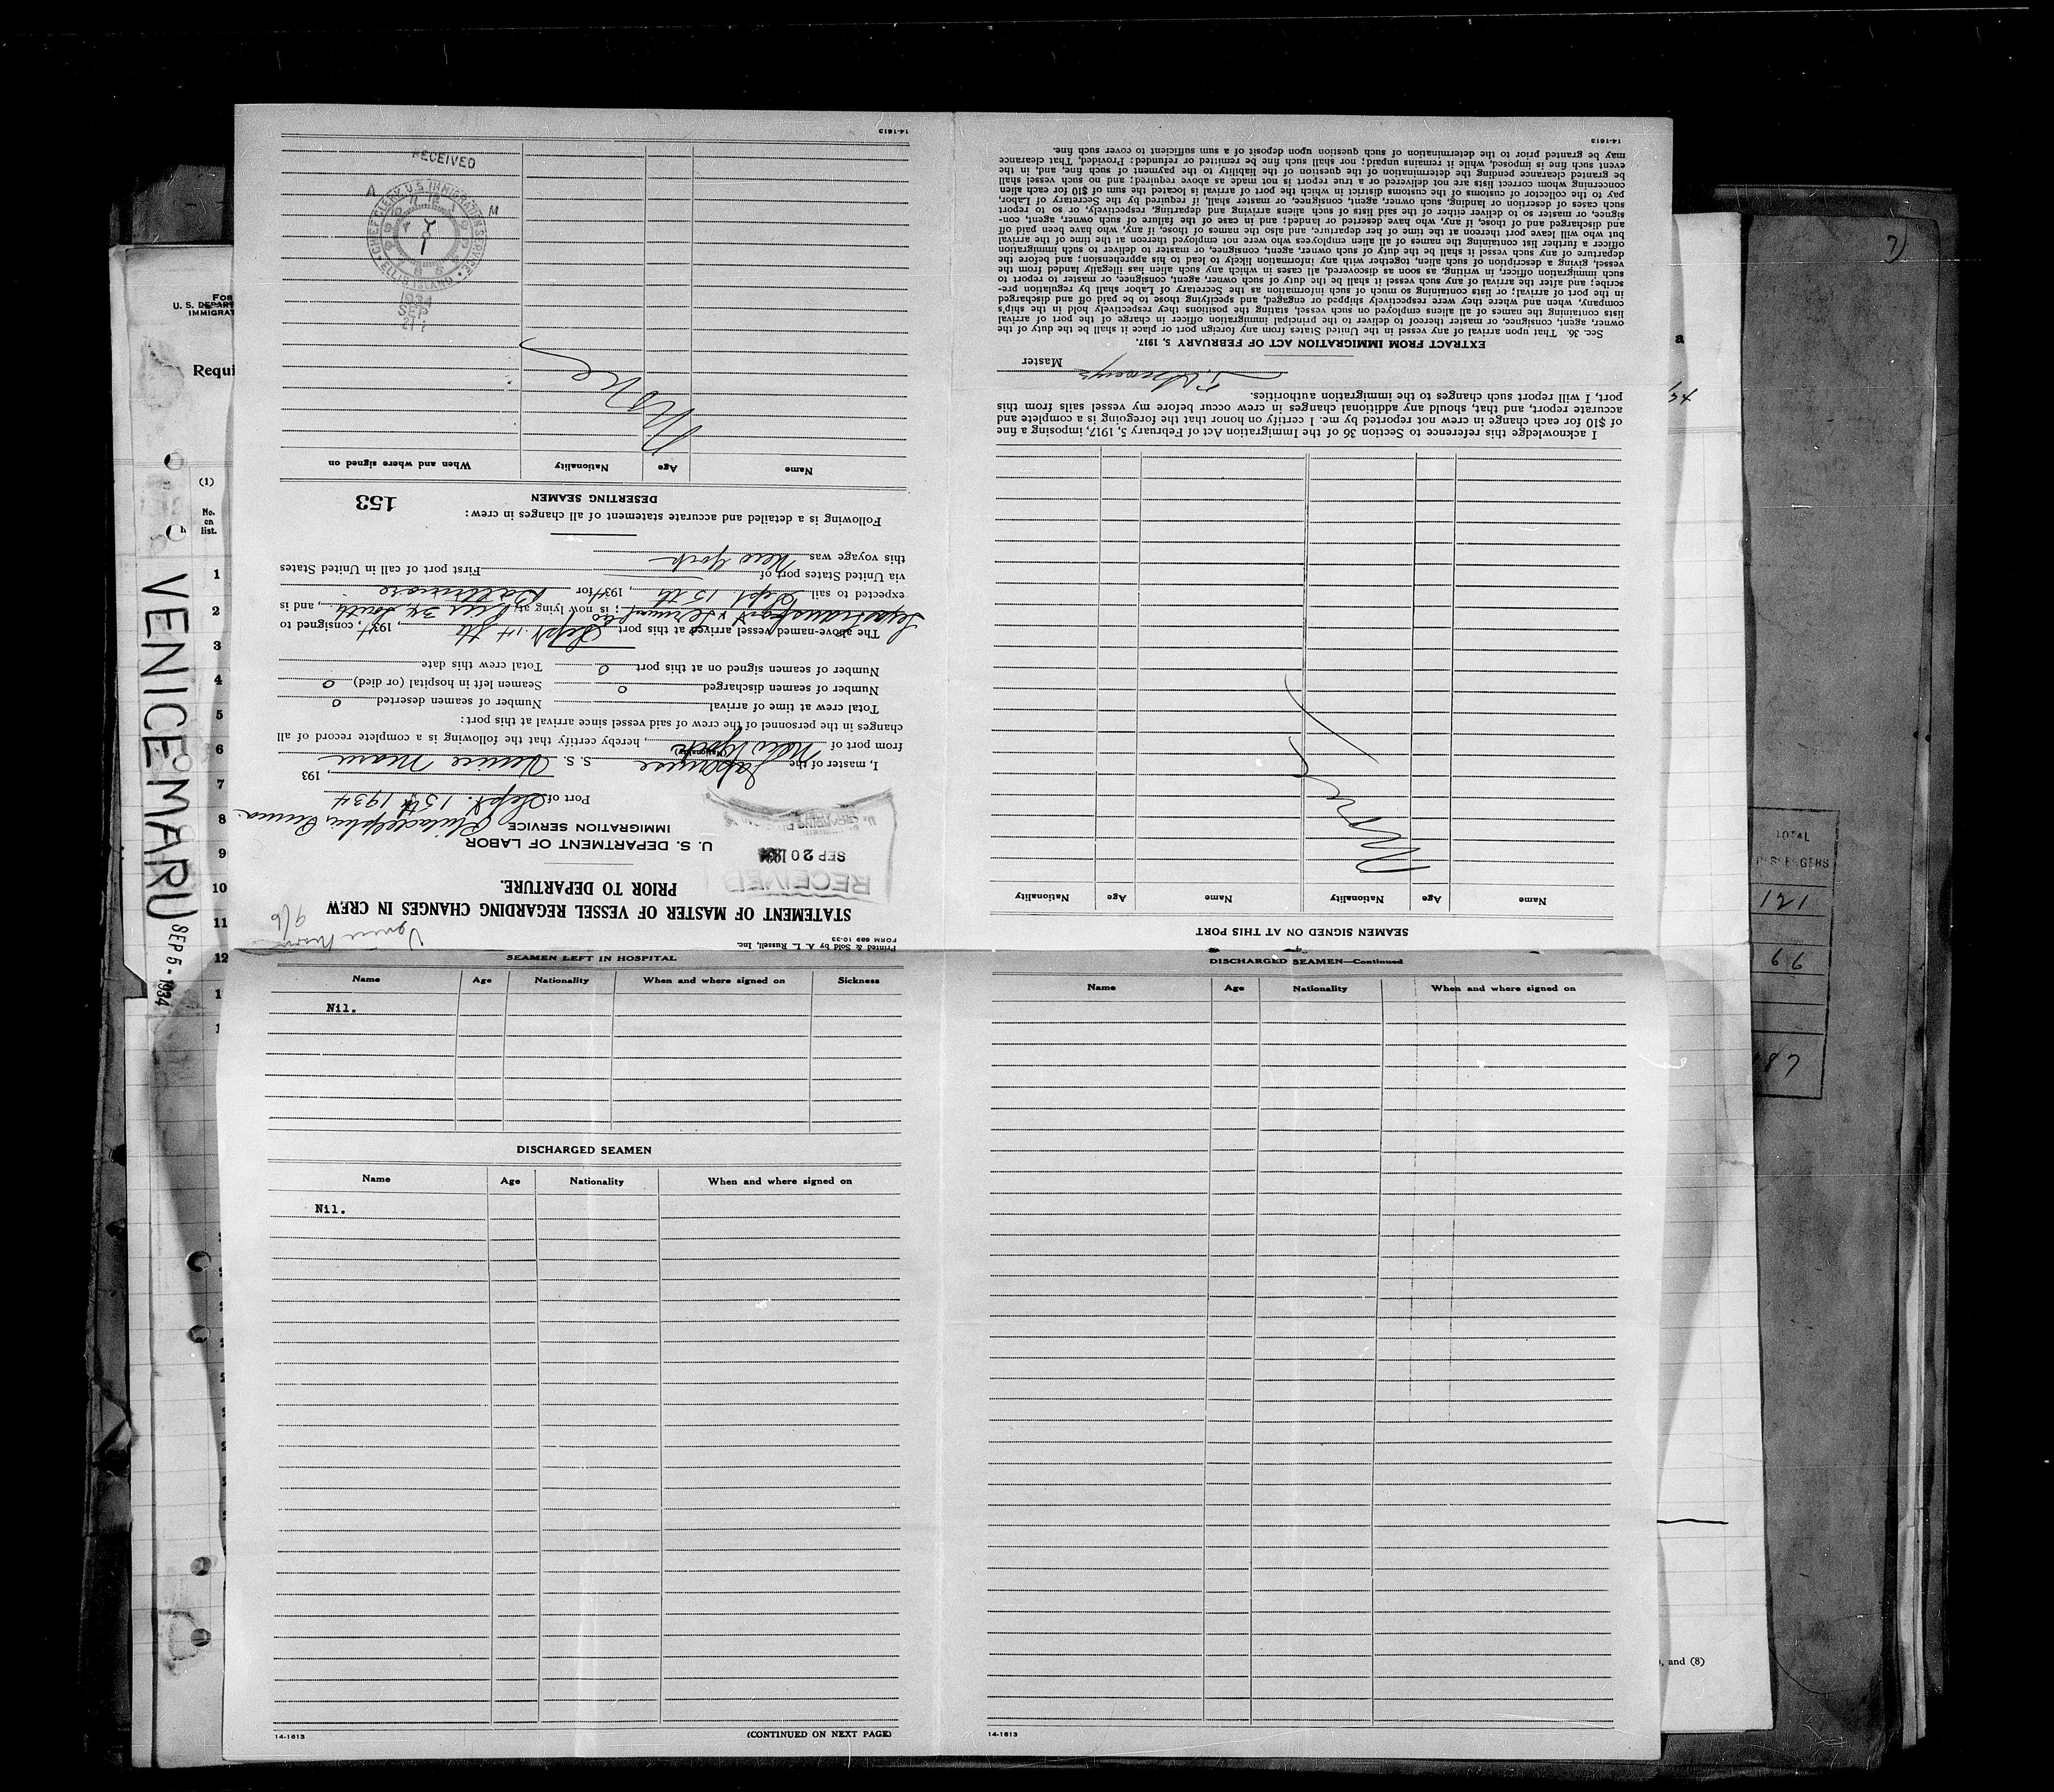 Printed & Sold by A. L. Russell, Inc.
FORM 689 10-33
Venice Maru
9/6
STATEMENT OF MASTER OF VESSEL REGARDING CHANGES IN CREW
PRIOR TO DEPARTURE.
RECEIVED
SEP 20 1934
U. S. DEPARTMENT OF LABOR
IMMIGRATION SERVICE
Philadelphia Penna.
Port of Sept. 15th 1934, 193
I, master of the Japanese S. S. Venice Maru
(Nationality)
from port of New York, hereby certify that the following is a complete record of all
changes in the personnel of the crew of said vessel since arrival at this port:
Total crew at time of arrival Number of seamen deserted 0
Number of seamen discharged 0 Seamen left in hospital (or died) 0
Number of seamen signed on at this port 0 Total crew this date
The above-named vessel arrived at this port Sept. 14 th, 1934, consigned to
; is now lying at Pier 34 South, and is
expected to sail Sept 15 th, 1934 for Baltimore
via United States port of First port of call in United States
this voyage was New York
Following is a detailed and accurate statement of all changes in crew:
DESERTING SEAMEN
153
Name Age Nationality When and where signed on
None
1934
SEP
21
CHIEF CLERK U.S. IMMIGRATION SERVICE
ELLIS ISLAND
A M
RECEIVED
14-1613
SEAMEN SIGNED ON AT THIS PORT
Name Age Nationality Name Age Nationality
None
I acknowledge this reference to Section 36 of the Immigration Act of February 5, 1917, imposing a fine
of $10 for each change in crew not reported by me. I certify on honor that the foregoing is a complete and
accurate report, and that, should any additional changes in crew occur before my vessel sails from this
port, I will report such changes to the immigration authorities.
Master
EXTRACT FROM IMMIGRATION ACT OF FEBRUARY 5, 1917.
Sec. 36. That upon arrival of any vessel in the United States from any foreign port or place it shall be the duty of the
owner, agent, consignee, or master thereof to deliver to the principal immigration officer in charge of the port of arrival
lists containing the names of all aliens employed on such vessel, stating the positions they respectively hold in the ship's
company, when and where they were respectively shipped or engaged, and specifying those to be paid off and discharged
in the port of arrival; or lists containing so much of such information as the Secretary of Labor shall by regulation pre-
scribe; and after the arrival of any such vessel it shall be the duty of such owner, agent, consignee, or master to report to
such immigration officer, in writing, as soon as discovered, all cases in which any such alien has illegally landed from the
vessel, giving a description of such alien, together with any information likely to lead to his apprehension; and before the
departure of any such vessel it shall be the duty of such owner, agent, consignee, or master to deliver to such immigration
officer a further list containing the names of all alien employees who were not employed thereon at the time of the arrival
but who will leave port thereon at the time of her departure, and also the names of those, if any, who have been paid off
and discharged and of those, if any, who have deserted or landed; and in case of the failure of such owner, agent, con-
signee, or master so to deliver either of the said lists of such aliens arriving and departing, respectively, or so to report
such cases of desertion or landing, such owner, agent, consignee, or master, shall, if required by the Secretary of Labor,
pay to the collector of customs of the customs district in which the port of arrival is located the sum of $10 for each alien
concerning whom correct lists are not delivered or a true report is not made as above required; and no such vessel shall
be granted clearance pending the determination of the question of the liability to the payment of such fine, and, in the
event such fine is imposed, while it remains unpaid; nor shall such fine be remitted or refunded: Provided, That clearance
may be granted prior to the determination of such question upon deposit of a sum sufficient to cover such fine.
14-1613
SEAMEN LEFT IN HOSPITAL
Name Age Nationality When and where signed on Sickness
Nil.
DISCHARGED SEAMEN
Name Age Nationality When and where signed on
Nil.
14-1613
(CONTINUED ON NEXT PAGE)
DISCHARGED SEAMEN—Continued
Name Age Nationality When and where signed on
14-1613
VENICE MARU SEP 5 - 1934
U. S. DEPART
IMMIGRAT
Requi
(1)
No.
on
list.
1
2
3
4
5
6
7
8
9
10
11
12
TOTAL
PASSENGERS
121
66
, and (8)